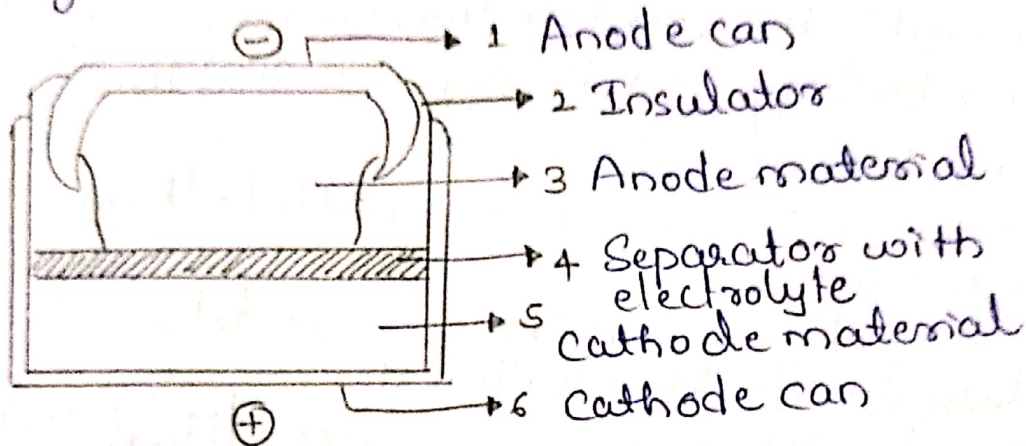 ⊖
1 Anode can
2 Insulator
3 Anode material
4 Separator with
electrolyte
5
cathode material
6 cathode can
⊕